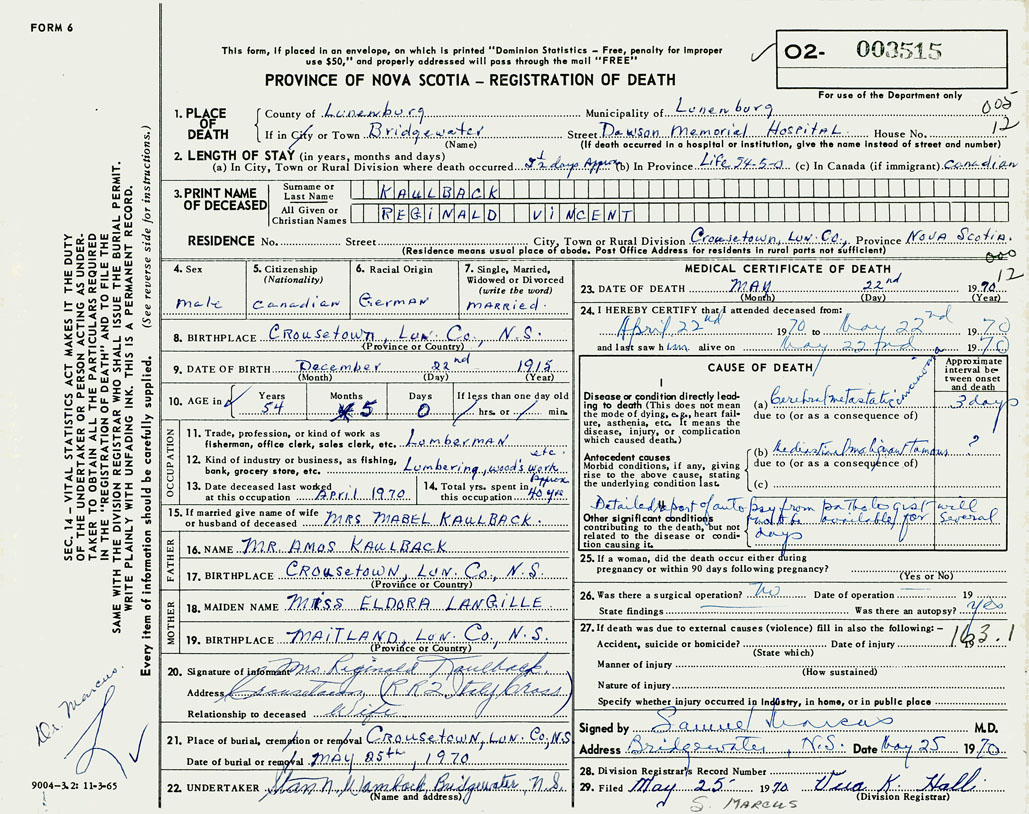 FORM 6
This form, if placed in an envelope, on which is printed "Dominion Statistics – Free, penalty for improper
use $50," and properly addressed will pass through the mail "FREE"
PROVINCE OF NOVA SCOTIA – REGISTRATION OF DEATH
O2- 003515
For use of the Department only
005
12
1. PLACE OF DEATH
County of Lunenburg Municipality of Lunenburg
If in City or Town Bridgewater Street Dawson Memorial Hospital House No.
(Name) (If death occurred in a hospital or institution, give the name instead of street and number)
2. LENGTH OF STAY (in years, months and days)
(a) In City, Town or Rural Division where death occurred days Approx (b) In Province Life 54-5-0 (c) In Canada (if immigrant) Canadian
3. PRINT NAME OF DECEASED
Surname or Last Name KAULBACK
All Given or Christian Names REGINALD VINCENT
RESIDENCE No. Street City, Town or Rural Division Crousetown, Lun. Co., Province Nova Scotia.
(Residence means usual place of abode. Post Office Address for residents in rural parts not sufficient)
000
12
4. Sex male
5. Citizenship (Nationality) Canadian
6. Racial Origin German
7. Single, Married, Widowed or Divorced (write the word) MARRIED.
8. BIRTHPLACE Crousetown, Lun. Co., N.S.
(Province or Country)
9. DATE OF BIRTH December 22nd 1915
(Month) (Day) (Year)
10. AGE in Years 54 Months 5 Days 0 If less than one day old hrs. or min.
OCCUPATION
11. Trade, profession, or kind of work as fisherman, office clerk, sales clerk, etc. Lumberman
12. Kind of industry or business, as fishing, bank, grocery store, etc. Lumbering, wood's work etc.
13. Date deceased last worked at this occupation April 1970
14. Total yrs. spent in this occupation Approx 40 yrs
15. If married give name of wife or husband of deceased MRS MABEL KAULBACK.
FATHER
16. NAME MR. AMOS KAULBACK
17. BIRTHPLACE Crousetown, Lun. Co., N.S.
(Province or Country)
MOTHER
18. MAIDEN NAME MISS ELDORA LANGILLE
19. BIRTHPLACE MAITLAND, Lun. Co., N.S.
(Province or Country)
20. Signature of informant Mrs. Reginald Kaulback
Address Crousetown (R R 2 Italy Cross)
Relationship to deceased Wife
21. Place of burial, cremation or removal Crousetown, Lun. Co, N.S
Date of burial or removal MAY 25th, 1970
22. UNDERTAKER Bridgewater, N.S.
(Name and address)
MEDICAL CERTIFICATE OF DEATH
23. DATE OF DEATH MAY 22nd 1970
(Month) (Day) (Year)
24. I HEREBY CERTIFY that I attended deceased from:
April 22nd 1970 to May 22nd 1970
and last saw him alive on May 22nd 1970
CAUSE OF DEATH
Approximate interval between onset and death
I
Disease or condition directly leading to death (This does not mean the mode of dying, e.g., heart failure, asthenia, etc. It means the disease, injury, or complication which caused death.)
(a) Cerebral metastatic carcinoma 3 days
due to (or as a consequence of)
Antecedent causes
Morbid conditions, if any, giving rise to the above cause, stating the underlying condition last.
(b) ?
due to (or as a consequence of)
(c)
Detailed report of autopsy from pathologist will
not be available for several
days
Other significant conditions contributing to the death, but not related to the disease or condition causing it.
25. If a woman, did the death occur either during pregnancy or within 90 days following pregnancy?
(Yes or No)
26. Was there a surgical operation? No Date of operation 19
State findings Was there an autopsy? yes
27. If death was due to external causes (violence) fill in also the following:–
163.1
Accident, suicide or homicide? Date of injury 19
(State which)
Manner of injury
(How sustained)
Nature of injury
Specify whether injury occurred in Industry, in home, or in public place
Signed by Samuel Marcus M.D.
Address Bridgewater, N.S. Date May 25 1970
28. Division Registrar's Record Number
29. Filed May 25 1970 K. Hall
(Division Registrar)
S. MARCUS
SEC. 14 – VITAL STATISTICS ACT MAKES IT THE DUTY
OF THE UNDERTAKER OR PERSON ACTING AS UNDER-
TAKER TO OBTAIN ALL THE PARTICULARS REQUIRED
IN THE "REGISTRATION OF DEATH" AND TO FILE THE
SAME WITH THE DIVISION REGISTRAR WHO SHALL ISSUE THE BURIAL PERMIT.
WRITE PLAINLY WITH UNFADING INK. THIS IS A PERMANENT RECORD.
Every item of information should be carefully supplied. (See reverse side for instructions.)
Dr. Marcus
9004-3.2: 11-3-65